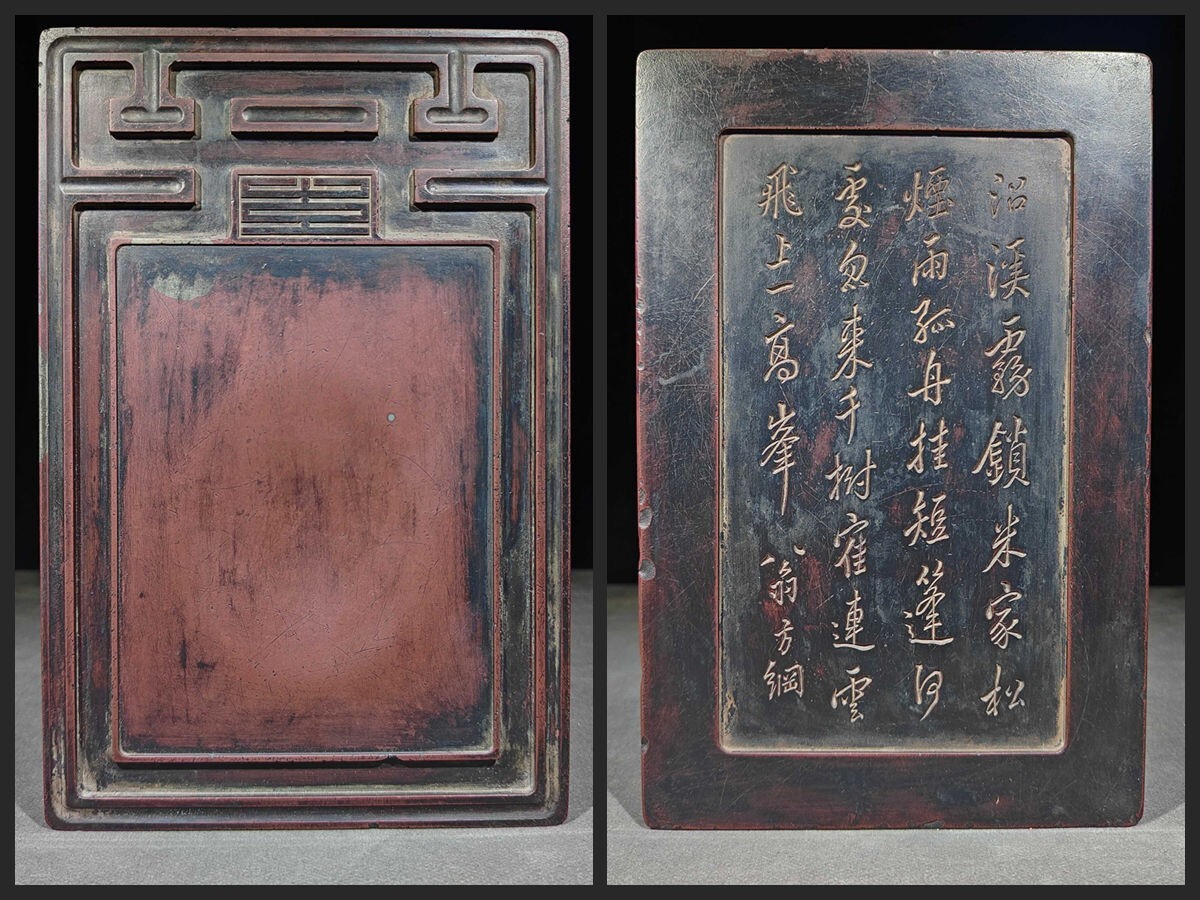 沿溪霧鎖米家松
煙雨孤舟挂短篷何
處忽來千樹寉連雲
飛上一高峯 翁方綱